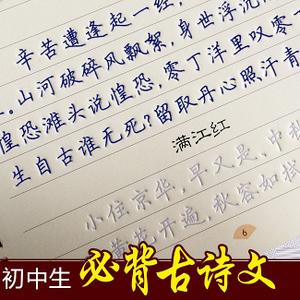 辛苦遭逢起一经，
。山河破碎风飘絮，身世浮沉
惶恐滩头说惶恐，零丁洋里叹零
生自古谁无死？留取丹心照汗青
满江红
小住京华，早又是，中秋
黄花开遍，秋容如拭
6
初中生 必背古诗文